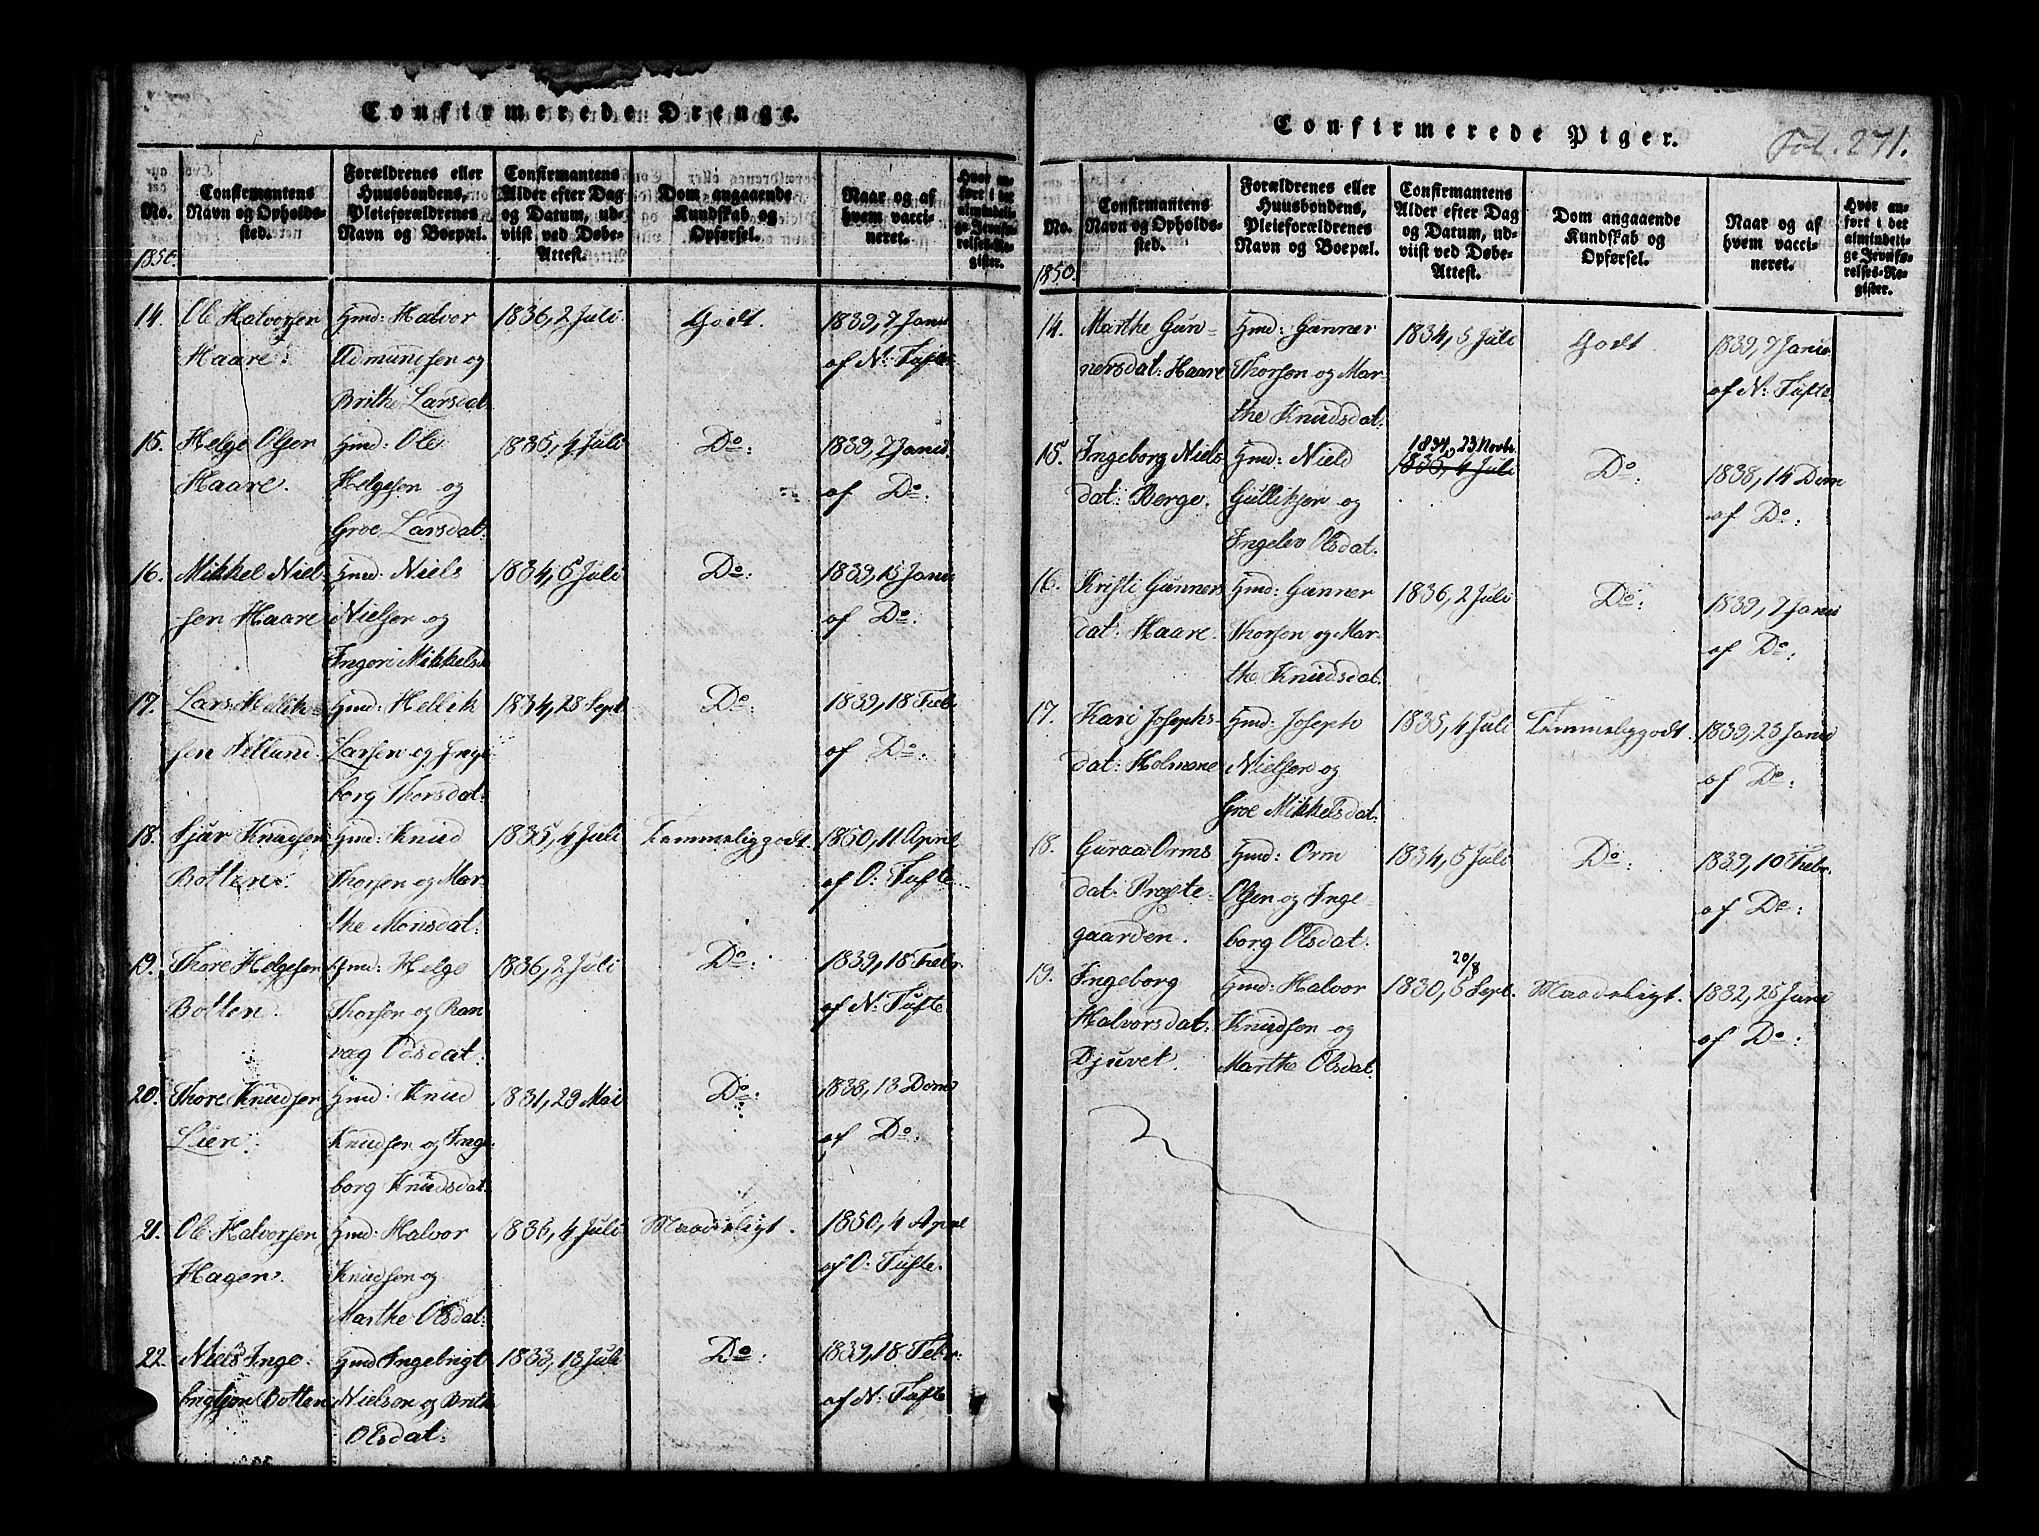 Confirmerede Drenge.
No.
Confirmantens Navn og Opholdssted.
Forældrenes eller Huusbondens, Pleieforældrenes Navn og Boepæl.
Confirmantens Alder efter Dag og Datum, udviist ved Døbe-Attest.
Dom angaaende Kundskab og Opførsel.
Naar og af hvem vaccineret.
Hvor anført i det almindelige Jevnførelses-Register.
1850.
14. Ole Halvorsen Gmd: Halvor 1836, 2 Juli. Godt. 1839, 7 Janu
Haare. Admundsen og af N: Tufte
Brithe Larsdat:
15. Helge Olsen Gmd: Ole 1835, 4 Juli Do: 1839, 7 Janu.
Haare. Helgesen og af Do:
Groe Larsdat:
16. Mikkel Niel- Gmd: Niels 1834, 5 Juli Do: 1839, 15 Janu
sen Haare Nielsen og af Do:
Ingeri Mikkelsd
17. Lars Hellik- Gmd: Hellik 1834, 28 Sept Do: 1839, 18 Febr.
sen Larsen og Inge- af Do:
borg Thorsdat:
18. Sjur Knudsen Gmd: Knud 1835, 4 Juli Temmeliggodt. 1850, 11 April
Botten. Thorsen og Mar- af O: Tufte.
the Monsdat:
19. Thore Helgesen Gmd: Helge 1836, 2 Juli Do: 1839, 18 Febr.
Botten. Thorsen og Ran af N: Tufte
vag Odsdat:
20. Thore Knudsen Gmd: Knud 1831, 29 Mai Do: 1838, 13 Dem
Lien. Knudsen og Inge- af Do:
borg Knudsdat:
21. Ole Halvorsen Gmd: Halvor 1836, 4 Juli Maadeligt. 1850, 4 April
Hagen. Knudsen og af O: Tufte.
Marthe Olsdat:
22. Niels Inge- Gmd Ingebrigt 1833, 13 Juli Do: 1839, 18 Febr:
brigtsen Botten Nielsen og Brith af N: Tufte
Olsdat:
Confirmerede Piger.
Fol. 271.
No.
Confirmantens Navn og Opholdssted.
Forældrenes eller Huusbondens, Pleieforældrenes Navn og Boepæl.
Confirmantens Alder efter Dag og Datum, udviist ved Døbe-Attest.
Dom angaaende Kundskab og Opførsel.
Naar og af hvem vaccineret.
Hvor anført i det almindelige Jevnførelses-Register.
1850.
14. Marthe Gun- Gmd: Gunner 1834, 5 Juli Godt 1839, 7 Janu
nersdat: Haare Thorsen og Mar- af N: Tufte.
the Knudsdat:
1834, 23 Novbr.
15. Ingeborg Niels Gmd: Niels 1835, 4 Juli Do: 1838, 14 Dem
dat: Berge. Gulliksen og af Do:
Ingelev Olsdat:
16. Kristi Gunners Gmd: Gunner 1836, 2 Juli Do: 1839, 7 Janu
dat: Haare. Thorsen og Mar- af Do:
the Knudsdat:
17. Kari Josephs- Gmd: Joseph 1835, 4 Juli Temmeliggodt. 1839, 23 Janu
dat: Holmene Nielsen og af Do:
Groe Mikkelsdat:
18. Guraa Orms Gmd: Orm 1834, 5 Juli Do: 1839, 10 Febr.
dat: Præste- Olsen og Inge af Do:
gaarden. borg Olsdat:
20/8
19. Ingeborg Gmd: Halvor 1830, 5 Sept. Maadeligt. 1832, 25 Juni
Halvorsdat: Knudsen og af Do:
Djuvet. Marthe Olsdat: